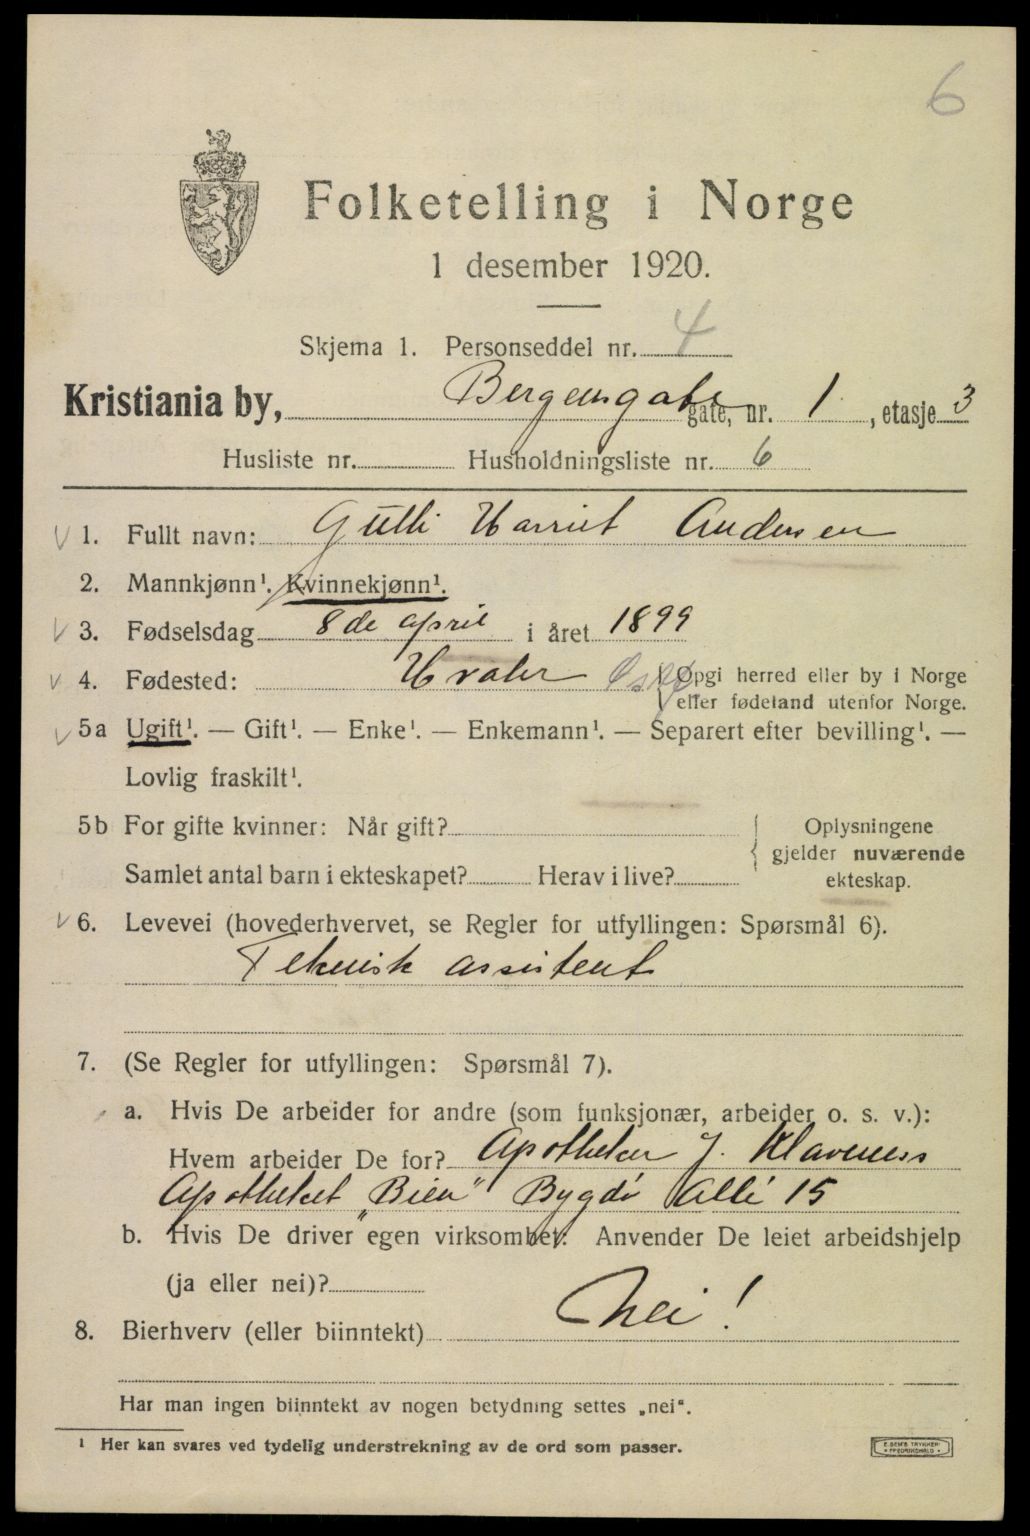 6
Folketelling i Norge
1 desember 1920.
Skjema 1. Personseddel nr. 4
Kristiania by, Bergensgate gate, nr. 1, etasje 3
Husliste nr. Husholdningsliste nr. 6
1. Fullt navn: Gulli Harriet Andersen
2. Mannkjønn¹. Kvinnekjønn¹.
3. Fødselsdag 8de april i året 1899
4. Fødested: Hvaler Østf Opgi herred eller by i Norge
eller fødeland utenfor Norge.
5a Ugift¹. — Gift¹. — Enke¹. — Enkemann¹. — Separert efter bevilling¹. —
Lovlig fraskilt¹.
5b For gifte kvinner: Når gift? Oplysningene
gjelder nuværende
Samlet antal barn i ekteskapet? Herav i live? ekteskap.
6. Levevei (hovederhvervet, se Regler for utfyllingen: Spørsmål 6).
Teknisk assistent
7. (Se Regler for utfyllingen: Spørsmål 7).
a. Hvis De arbeider for andre (som funksjonær, arbeider o. s. v.):
Hvem arbeider De for? Apotheker J. Klaveness
Apotheket „Bien" Bygdö Allé 15
b. Hvis De driver egen virksomhet: Anvender De leiet arbeidshjelp
(ja eller nei)?
8. Bierhverv (eller biinntekt) Nei!
Har man ingen biinntekt av nogen betydning settes „nei".
¹ Her kan svares ved tydelig understrekning av de ord som passer.
E. SEM'S TRYKKERI
FREDRIKSHALD